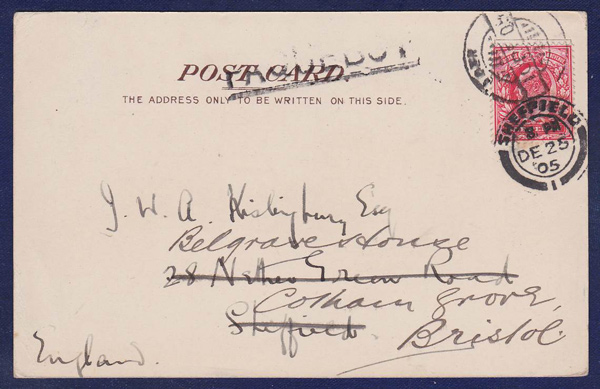 POST CARD
PAQUEBOT
THE ADDRESS ONLY TO BE WRITTEN ON THIS SIDE.
SHEFFIELD
8 PM
DE 25
05
1
J. W. A. Kislingbury Esq
Belgrave House
28 Nether Green Road
Cotham Grove,
Sheffield.
Bristol.
England.